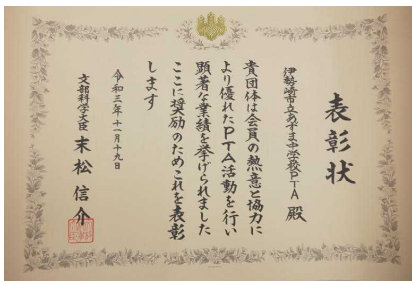 表彰状
伊勢崎市立あずま中学校PTA 殿
貴団体は会員の熱意と協力に
より優れたPTA活動を行い
顕著な業績を挙げられました
ここに奨励のためこれを表彰
します
令和三年十一月十九日
文部科学大臣 末松信介